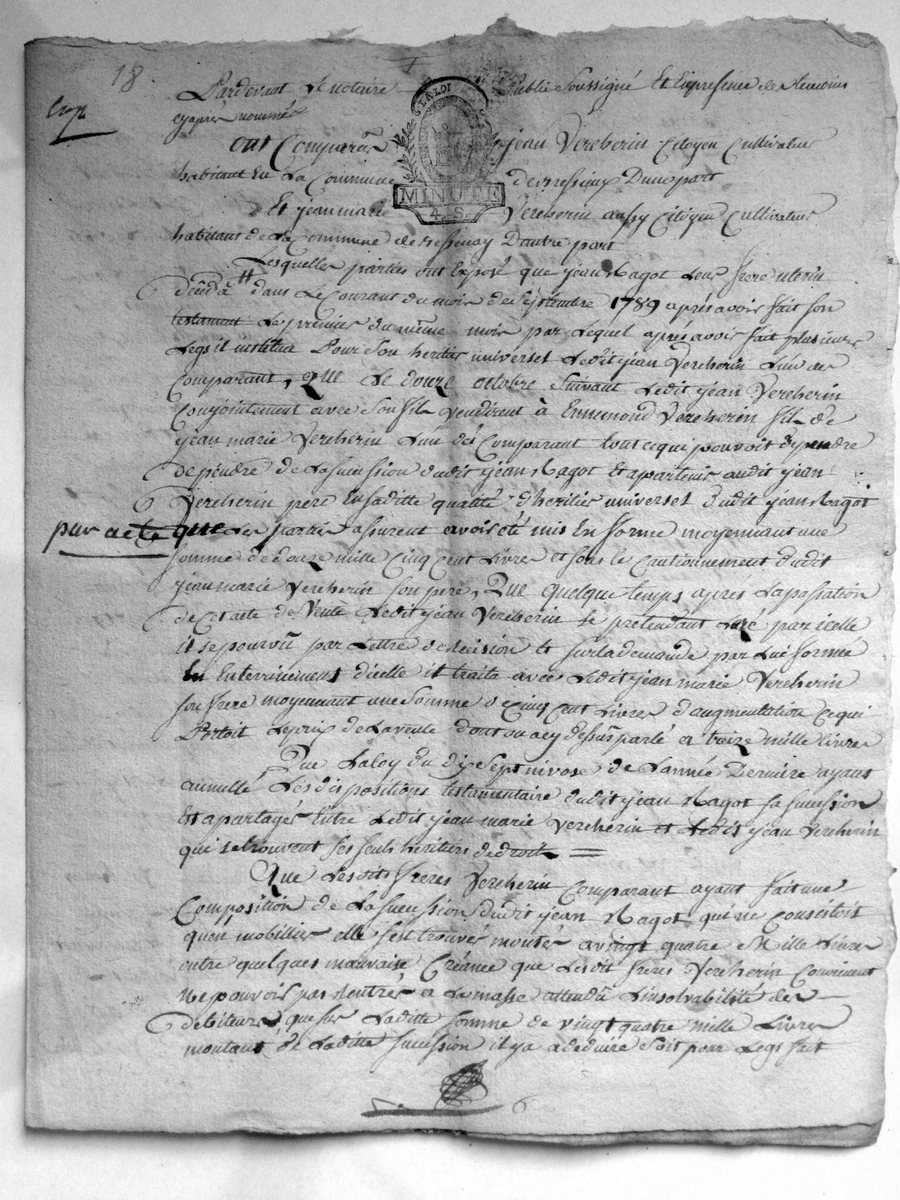 18
Exp
Pardevant Le notaire Public Soussigné Et En presence de temoins
cy après nommés
LA LOI
MINUTE
4. S.
ont Comparu jean Vercherin Citoyen Cultivateur
habitant En La Commune de Messimy D'une part
Et jean marie Vercherin aussy Citoyen Cultivateur
habitant de La Commune de D'autre part
Lesquelles parties ont Exposé que jean Ragot Leur frere uterin
décéda dans Le Courant du mois de Septembre 1789 après avoir fait son
testament Le premier du même mois par Lequel après avoir fait plusieurs
Legs il institua Pour Son heritier universel Ledit jean Vercherin L'un des
Comparant, Que Le douze octobre Suivant Ledit jean Vercherin
Conjointement avec Son fils Vendirent à Ennemond Vercherin fils de
jean marie Vercherin L'un des Comparant tout ce qui pouvoit dependre
dependre de La succession dudit jean Ragot Et apartenir audit jean
Vercherin pere En sa ditte qualité d'heritier universel dudit jean Ragot
par acte que Les parties assurent avoir été mis En forme moyennant une
somme de douze mille Cinq Cent Livres et sous Le Cautionnement dudit
jean marie Vercherin Son pere, Que quelque temps après La passation
de Cet acte de Vente Ledit jean Vercherin Se prétendant Lezé par icelle
il se pourvû par Lettre de rescision Et sur La demande par Lui formée
En Enterrinement d'icelle il traita avec Ledit jean marie Vercherin
son frere moyennant une Somme de Cinq Cent Livres d'augmentation ce qui
Portoit Le prix de La vente dont on a cy dessus parlé a treize mille Livres
Que La Loy du dix Sept nivose de L'année Derniere ayant
annullé Les dispositions testamentaire dudit jean Ragot sa succession
Est apartagés Entre Ledit jean marie Vercherin et Ledit jean Vercherin
qui se trouvent Ses Seuls héritiers de droit
Que Lesdits freres Vercherin Comparant ayant fait une
Composition de La succession dudit jean Ragot qui ne Consistoit
qu'en mobillier elle s'est trouvée monter a vingt quatre Mille Livres
outre quelques mauvaise Créance que Lesdit freres Vercherin Conviennent
Ne pouvoir pas Rentrer a La masse attendu L'insolvabilité des
débiteurs, que sur Laditte Somme de vingt quatre mille Livres
montant de Laditte succession il y a a deduire Soit pour Legs fait